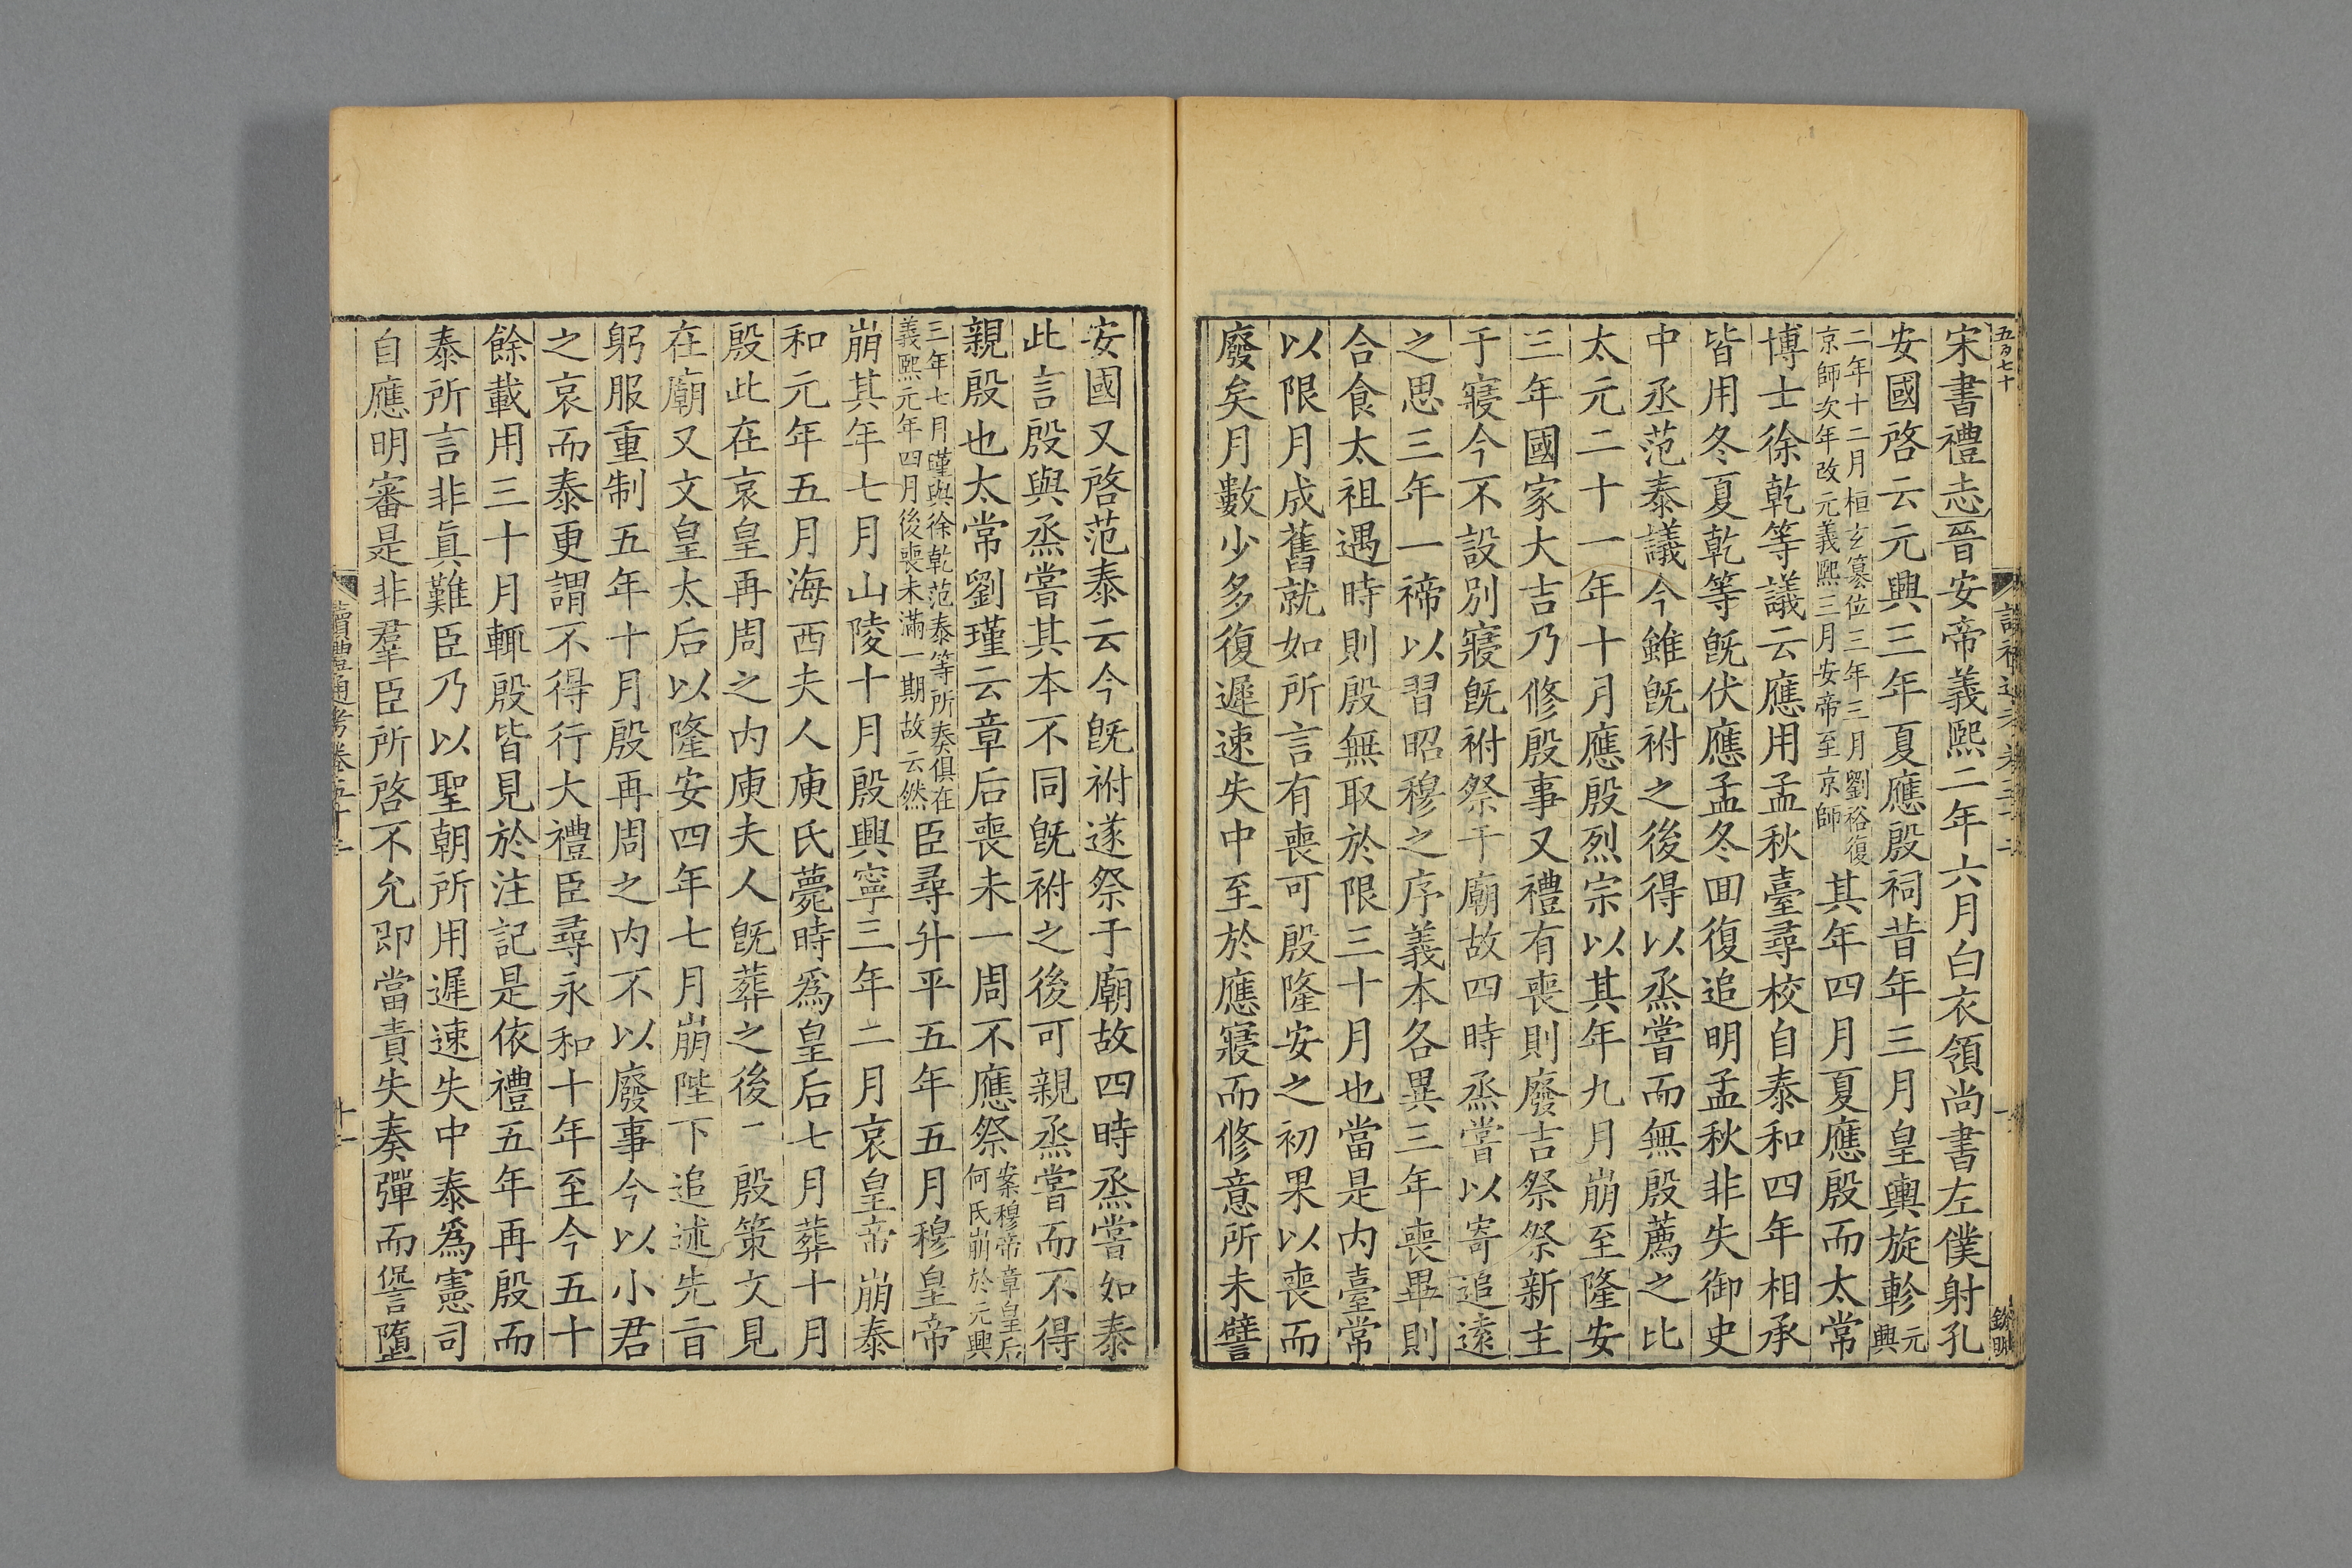 五百七十
宋書禮志晉安帝義熙二年六月白衣領尚書左僕射孔
安國啓云元興三年夏應殷祠昔年三月皇輿旋軫元興
二年十二月桓玄篡位三年三月劉裕復
京師次年改元義熙三月安帝至京師
其年四月夏應殷而太常
博士徐乾等議云應用孟秋臺尋校自泰和四年相承
皆用冬夏乾等旣伏應孟冬回復追明孟秋非失御史
中丞范泰議今雖旣祔之後得以烝嘗而無殷薦之比
太元二十一年十月應殷烈宗以其年九月崩至隆安
三年國家大吉乃修殷事又禮有喪則廢吉祭祭新主
于寢今不設別寢旣祔祭于廟故四時烝嘗以寄追遠
之思三年一禘以習昭穆之序義本各異三年喪畢則
合食太祖遇時則殷無取於限三十月也當是内臺常
以限月成舊就如所言有喪可殷隆安之初果以喪而
廢矣月數少多復遲速失中至於應寢而修意所未譬
安國又啓范泰云今旣祔遂祭于廟故四時烝嘗如泰
此言殷與烝嘗其本不同旣祔之後可親烝嘗而不得
親殷也太常劉瑾云章后喪未一周不應祭案穆帝章皇后
何氏崩於元興
三年七月瑾與徐乾范泰等所奏俱在
義熙元年四月後喪未滿一期故云然
臣尋升平五年五月穆皇帝
崩其年七月山陵十月殷興寧三年二月哀皇帝崩泰
和元年五月海西夫人庾氏薨時爲皇后七月葬十月
殷此在哀皇再周之内庾夫人旣葬之後二殷策文見
在廟又文皇太后以隆安四年七月崩陛下追述先旨
躬服重制五年十月殷再周之内不以廢事今以小君
之哀而泰更謂不得行大禮臣尋永和十年至今五十
餘載用三十月輒殷皆見於注記是依禮五年再殷而
泰所言非眞難臣乃以聖朝所用遲速失中泰爲憲司
自應明審是非羣臣所啓不允即當責失奏彈而愆墮
讀禮通考卷五十二
十一